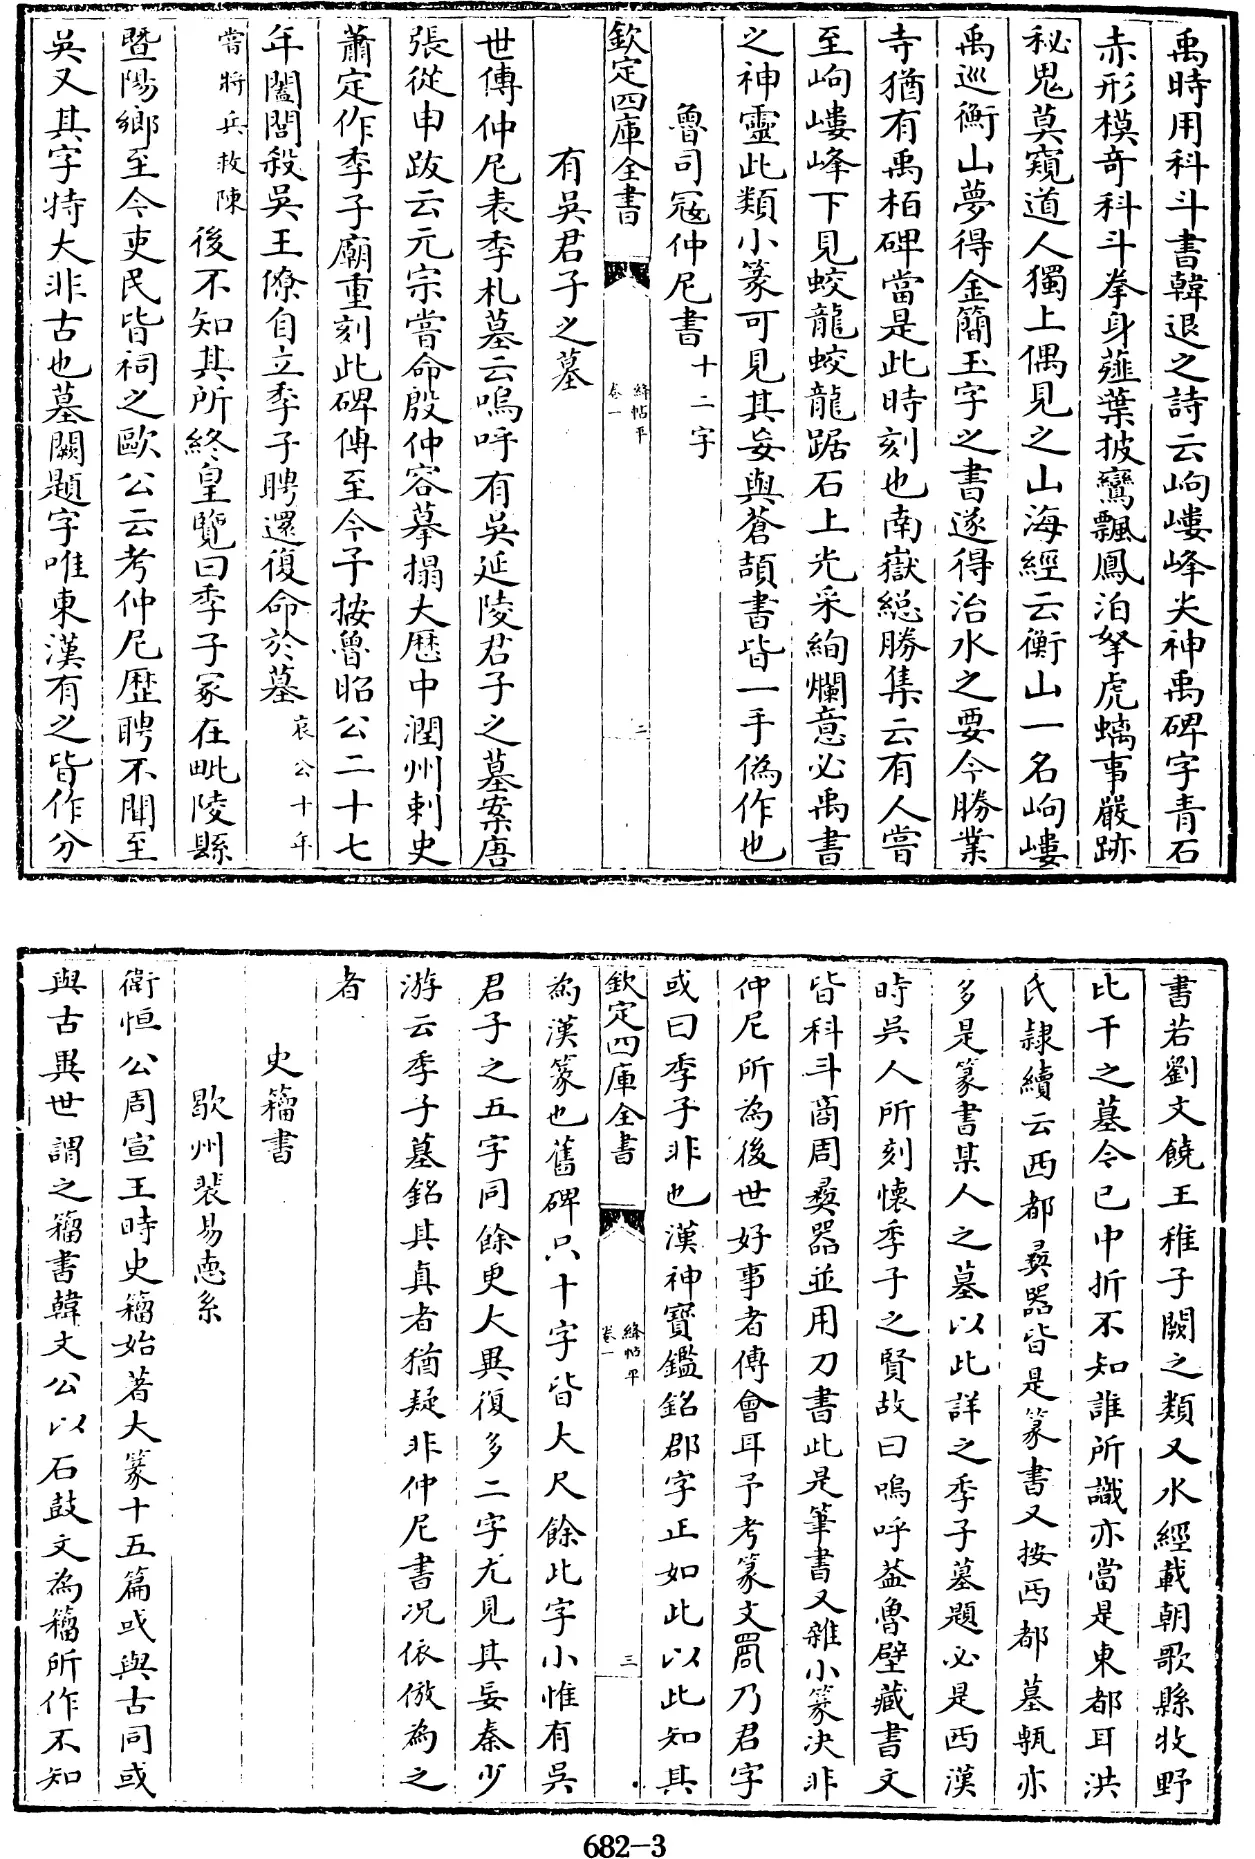 禹時用科斗書韓退之詩云岣嶁峰尖神禹碑字青石
赤形模奇科斗拳身薤葉披鸞飄鳳泊拏虎螭事嚴跡
秘鬼莫窺道人獨上偶見之山海經云衡山一名岣嶁
禹巡衡山夢得金簡玉字之書遂得治水之要今勝業
寺猶有禹柏碑當是此時刻也南嶽緫勝集云有人嘗
至岣嶁峰下見蛟龍蛟龍踞石上光采絢爛意必禹書
之神靈此類小篆可見其妄與蒼頡書皆一手偽作也
魯司寇仲尼書十二字
欽定四庫全書
絳帖平
卷一
二
有吳君子之墓
世傳仲尼表季札墓云嗚呼有吳延陵君子之墓案唐
張從申跋云元宗嘗命殷仲容摹搨大厯中潤州刺史
蕭定作季子廟重刻此碑傳至今予按魯昭公二十七
年闔閭殺吳王僚自立季子聘還復命於墓哀公十年
嘗將兵救陳後不知其所終皇覽曰季子冢在毗陵縣
暨陽鄉至今吏民皆祠之歐公云考仲尼歷聘不聞至
吳又其字特大非古也墓闕題字唯東漢有之皆作分
書若劉文饒王稚子闕之類又水經載朝歌縣牧野
比干之墓今已中折不知誰所識亦當是東都耳洪
氏隸續云西都彝器皆是篆書又按西都墓甎亦
多是篆書某人之墓以此詳之季子墓題必是西漢
時吳人所刻懐季子之賢故曰嗚呼葢魯壁藏書文
皆科斗商周彝器並用刀書此是筆書又雜小篆决非
仲尼所為後世好事者傳會耳予考篆文𠱭乃君字
或曰季子非也漢神寶鑑銘郡字正如此以此知其
欽定四庫全書
絳帖平
卷一
三
為漢篆也舊碑只十字皆大尺餘此字小惟有吳
君子之五字同餘更大異復多二字尤見其妄秦少
游云季子墓銘其真者猶疑非仲尼書况依倣為之
者
史籀書
歇州裴易恵系
衛恒公周宣王時史籀始著大篆十五篇或與古同或
與古異世謂之籀書韓文公以石鼓文為籀所作不知
682-3